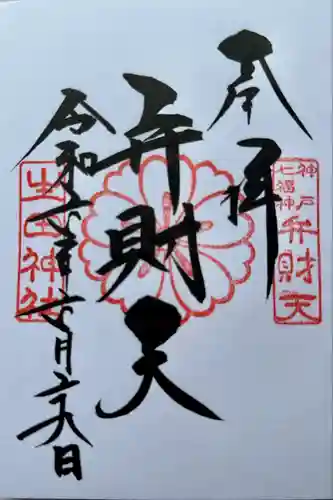 奉拝
神戸
七福神
弁財天
弁財天
生田神社
令和六年七月二六日